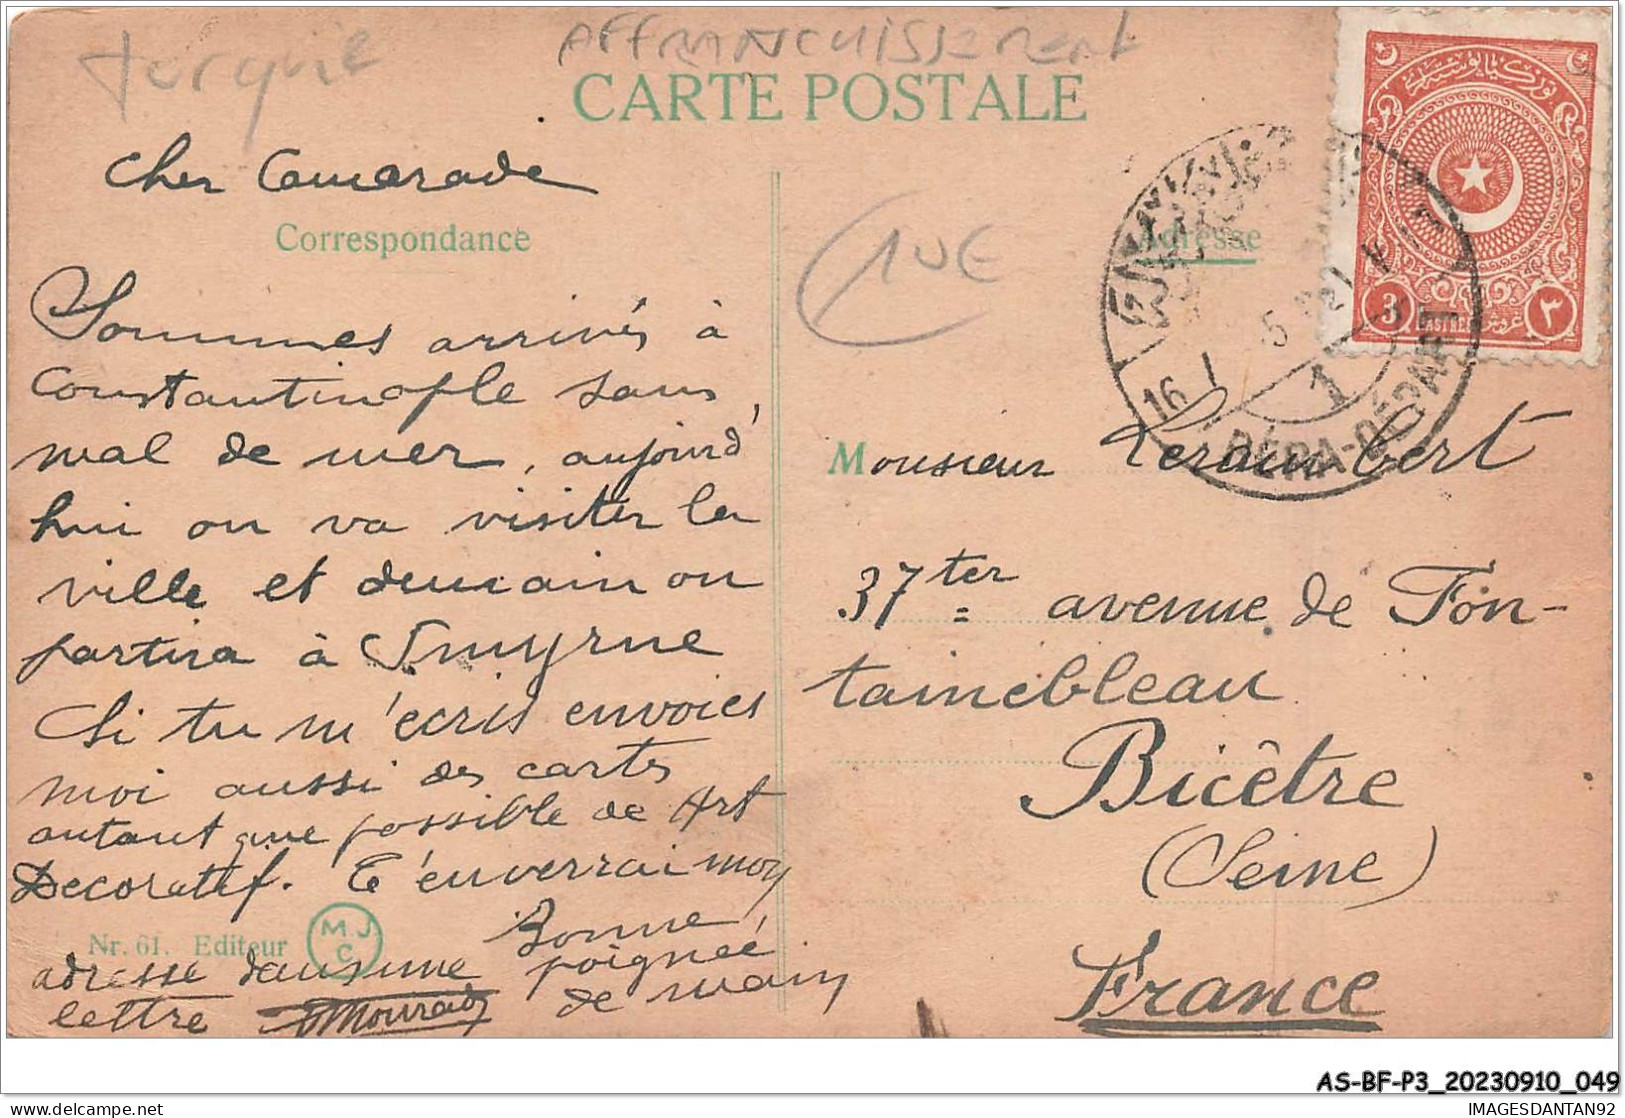 turquie
AFFRANCHISSEMENT
CARTE POSTALE
Cher Camarade
Correspondance
Sommes arrivés à
Constantinople sans
mal de mer, aujourd'
hui on va visiter la
ville et demain on
partira à Smyrne
Si tu m'écris envoies
moi aussi des cartes
autant que possible de Art
Decoratif. Je t'enverrai mon
adresse dans une
lettre
Bonne
poignée
de main
Mourad
Nr. 61. Editeur
M.J.
C
10€
Adresse
3
PIASTRES
غروش
٣
16 1
1
PÉRA-DÉPART
Monsieur Lerambert
37 ter avenue de Fon-
tainebleau
Bicêtre
(Seine)
France
AS-BF-P3_20230910_049
delcampe.net
IMAGESDANTAN92